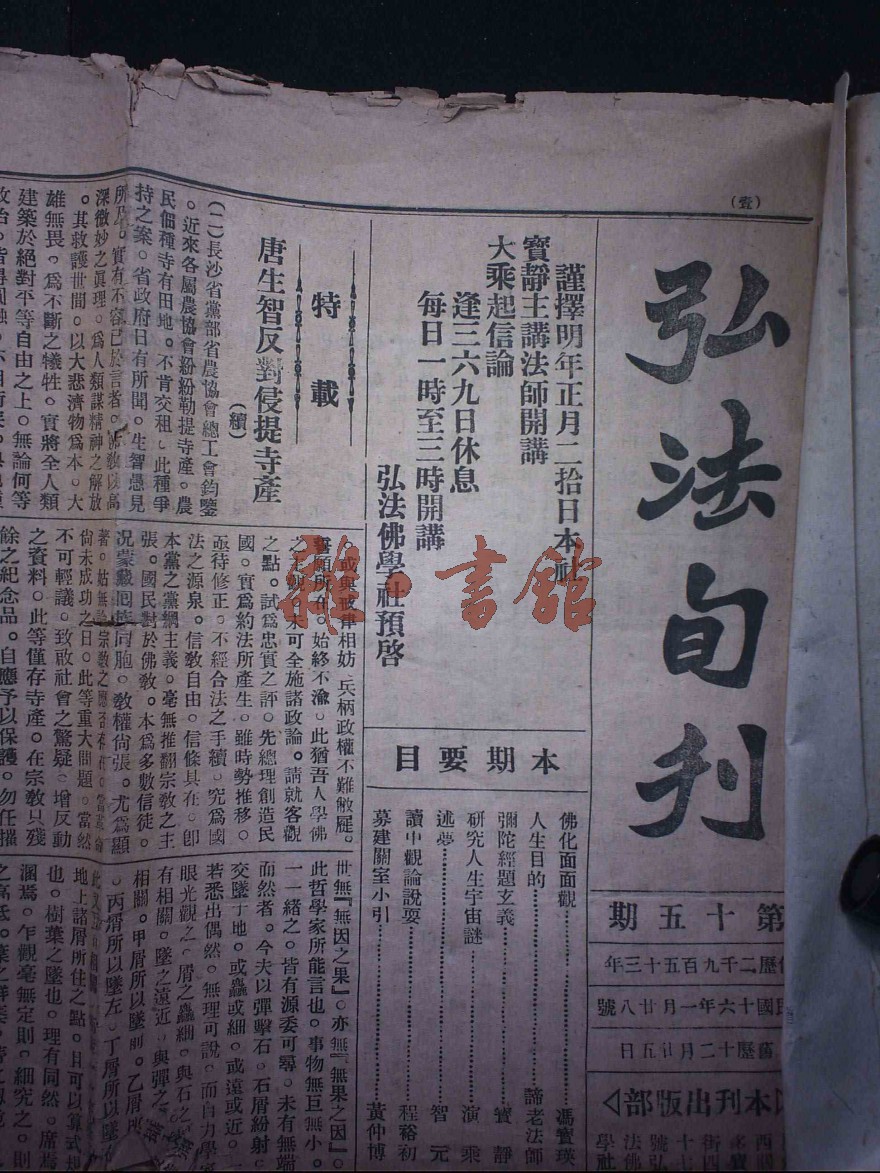 (壹)
弘法旬刊
第十五期
佛歷二千九百五十三年
民國十六年一月廿八號
舊歷十二月廿五日
本刊出版部
謹擇明年正月二拾日本社
寶靜主講法師開講
大乘起信論
逢三六九日休息
每日一時至三時開講
弘法佛學社預啓
本期要目
佛化面面觀 馮寶瑛
人生目的 諦老法師
彌陀經題玄義 寶靜
研究人生宇宙謎 演乘
述夢 智元
讀中觀論說要 程裕初
募建關室小引 黃仲博
特載
唐生智反對侵提寺產
(續)
(二)長沙省黨部省農協會總工會鈞鑒
。近來各屬農協會紛紛勒提寺產。農
民佃種寺有田地。不肯交租。此種爭
持之案。省政府日有所聞。生智愚見
所及。實有不容已於言者。佛敎以高
深微妙之眞理。爲人類謀精神之解放
。其救護世間。以大悲濟物爲本。大
雄無畏。爲不斷之犧牲。實將全人類
建築於絕對平等自由之上。無論何等
。或與戒律相妨 兵柄政權不難敝屣。
誓願所在。始終不渝。此猶吾人學佛
未可全施諸政論。請就客觀
之點。試爲忠實之評。先總理創造民
國。實爲約法所產生。雖時勢推移。
亟待修正。不經合法之手續。究爲國
法之源泉。信敎自由。信條具在。卽
本黨之黨綱主義。毫無推翻宗敎之主
張。國民對於佛敎。本爲多數信徒。
況蒙藏回族同胞。敎權尙張。尤爲顯
著。姑無論宗敎之應否存在。當革命
尙未成功之日。此等重大問題。當然
不可輕議。致啟社會之驚疑。增反動
之資料。此等僅存寺產。在宗敎只殘
餘之紀念品。自應予以保護。勿任摧
世無『無因之果』。亦無『無果之因』。
此哲學家所能言也。事物無巨無小。
一一緒之。皆有源委可尋。未有無端
而然者。今夫以彈擊石。石屑紛射。
交墜于地。或麤或細。或遠或近。一
若悉出偶然。無理可說。而自力學家
眼光觀之。屑之麤細。與石之
有相關。墜之遠近。與彈之
相關。甲屑所以墜前。乙屑所
。丙屑所以墜左。丁屑所以墜
地上諸屑所住之點。目可以算式
也。樹葉之墜也。理有同然。
焉。乍觀毫無定則。細究之。則
雜·書館